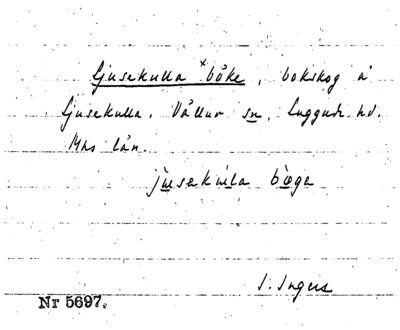 Ljusekulla ˣbôke, bokskog å
Ljusekulla. Vållur sn, Luggude hd.
Mhs län.
jusekula bøge
I. Ingers
Nr 5697.